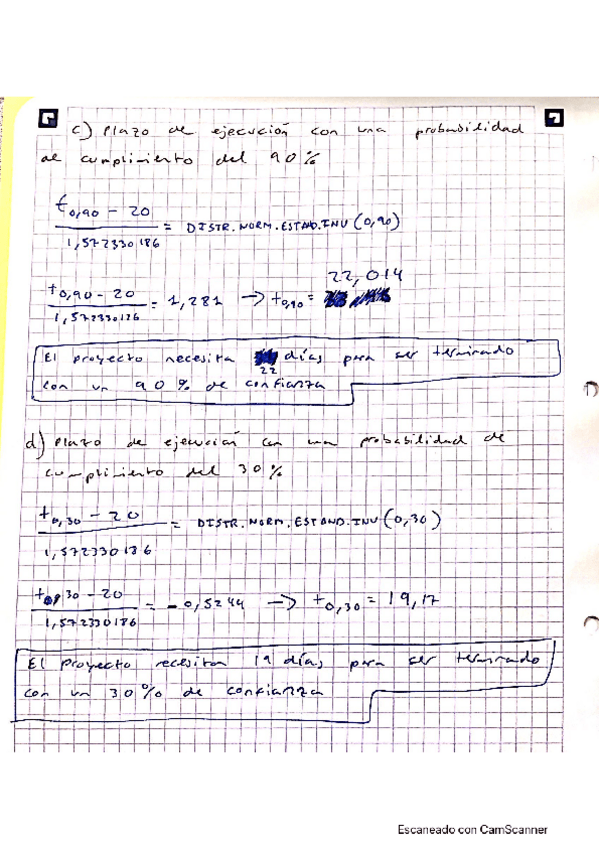 c) Plazo de ejecución con una probabilidad
de cumplimiento del 90%
t0,90 - 20 / 1,572330186 = DISTR.NORM.ESTAND.INV(0,90)
t0,90 - 20 / 1,572330186 = 1,281 → t0,90 = 22,014
El proyecto necesita 22 días para ser terminado
con un 90% de confianza
d) Plazo de ejecución con una probabilidad de
cumplimiento del 30%
t0,30 - 20 / 1,572330186 = DISTR.NORM.ESTAND.INV(0,30)
t0,30 - 20 / 1,572330186 = -0,5244 → t0,30 = 19,17
El proyecto necesita 19 días para ser terminado
con un 30% de confianza
Escaneado con CamScanner